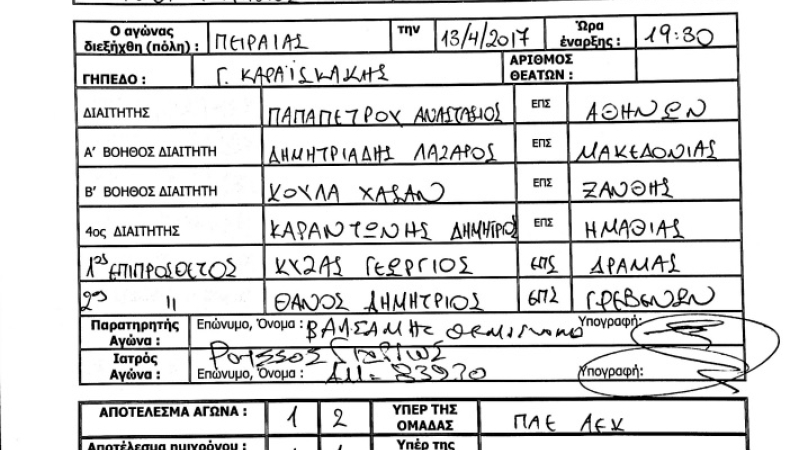 Ο αγώνας διεξήχθη (πόλη) : ΠΕΙΡΑΙΑΣ την 13/4/2017 Ώρα έναρξης : 19:30
ΓΗΠΕΔΟ : Γ. ΚΑΡΑΪΣΚΑΚΗΣ ΑΡΙΘΜΟΣ ΘΕΑΤΩΝ :
ΔΙΑΙΤΗΤΗΣ ΠΑΠΑΠΕΤΡΟΥ ΑΝΑΣΤΑΣΙΟΣ ΕΠΣ ΑΘΗΝΩΝ
Α' ΒΟΗΘΟΣ ΔΙΑΙΤΗΤΗ ΔΗΜΗΤΡΙΑΔΗΣ ΛΑΖΑΡΟΣ ΕΠΣ ΜΑΚΕΔΟΝΙΑΣ
Β' ΒΟΗΘΟΣ ΔΙΑΙΤΗΤΗ ΚΟΥΛΑ ΧΑΣΑΝ ΕΠΣ ΞΑΝΘΗΣ
4ος ΔΙΑΙΤΗΤΗΣ ΚΑΡΑΝΤΩΝΗΣ ΔΗΜΗΤΡΙΟΣ ΕΠΣ ΗΜΑΘΙΑΣ
1ος ΕΠΙΠΡΟΣΘΕΤΟΣ ΚΥΖΑΣ ΓΕΩΡΓΙΟΣ ΕΠΣ ΔΡΑΜΑΣ
2ος '' ΘΑΝΟΣ ΔΗΜΗΤΡΙΟΣ ΕΠΣ ΓΡΕΒΕΝΩΝ
Παρατηρητής Αγώνα : Επώνυμο, Όνομα : ΒΑΛΣΑΜΗΣ Υπογραφή:
Ιατρός Αγώνα : Επώνυμο, Όνομα : Υπογραφή:
ΑΠΟΤΕΛΕΣΜΑ ΑΓΩΝΑ : 1 2 ΥΠΕΡ ΤΗΣ ΟΜΑΔΑΣ ΠΑΕ ΑΕΚ
Αποτέλεσμα ημιχρόνου : Υπέρ της